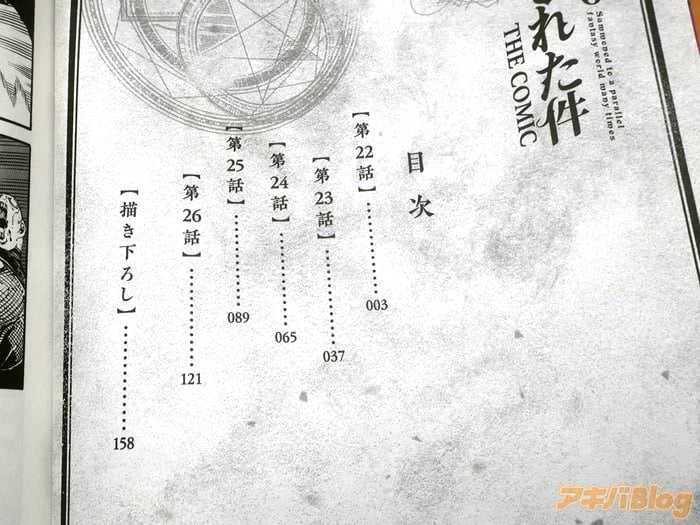 Summoned to a parallel
fantasy world many times
れた件
THE COMIC
目次
【第22話】………………003
【第23話】………………037
【第24話】………………065
【第25話】………………089
【第26話】………………121
【描き下ろし】………………158
アキバBlog